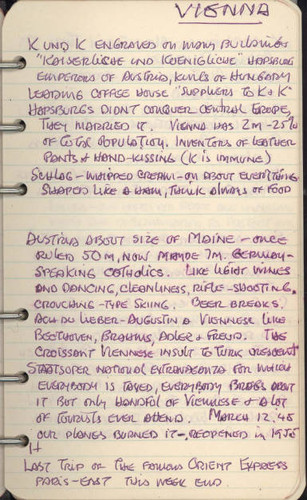 VIENNA
K UND K ENGRAVED ON MANY BUILDINGS
"KAISERLICHE UND KOENIGLICHE" HAPSBURG
EMPERORS OF AUSTRIA, KINGS OF HUNGARY
LEADING COFFEE HOUSE "SUPPLIERS TO K+K"
HAPSBURGS DIDNT CONQUER CENTRAL EUROPE,
THEY MARRIED IT. VIENNA HAS 2M - 25%
OF TOTAL POPULATION. INVENTORS OF LEATHER
PANTS + HAND-KISSING (K IS IMMUNE)
SCHLAG - WHIPPED CREAM - ON ABOUT EVERYTHING
SHAPED LIKE A HAM, THINK ALWAYS OF FOOD
AUSTRIA ABOUT SIZE OF MAINE - ONCE
RULED 50M, NOW 7M. GERMAN-
SPEAKING CATHOLICS. LIKE LIGHT WINES
AND DANCING, CLEANLINESS, RIFLE-SHOOTING,
CROUCHING-TYPE SKIING. BEER BREAKS.
ACH DU LIEBER - AUGUSTIN A VIENNESE LIKE
BEETHOVEN, BRAHMS, ADLER + FREUD. THE
CROISSANT VIENNESE INSULT TO TURK CRESCENT
STAATSOPER NATIONAL EXTRAVAGANZA FOR WHICH
EVERYBODY IS TAXED, EVERYBODY BRAGS ABOUT
IT BUT ONLY HANDFUL OF VIENNESE + A LOT
OF TOURISTS EVER ATTEND. MARCH 12, 45
OUR PLANES BURNED IT - REOPENED IN 1955
LAST TRIP OF THE FAMOUS ORIENT EXPRESS
PARIS-EAST THIS WEEK END